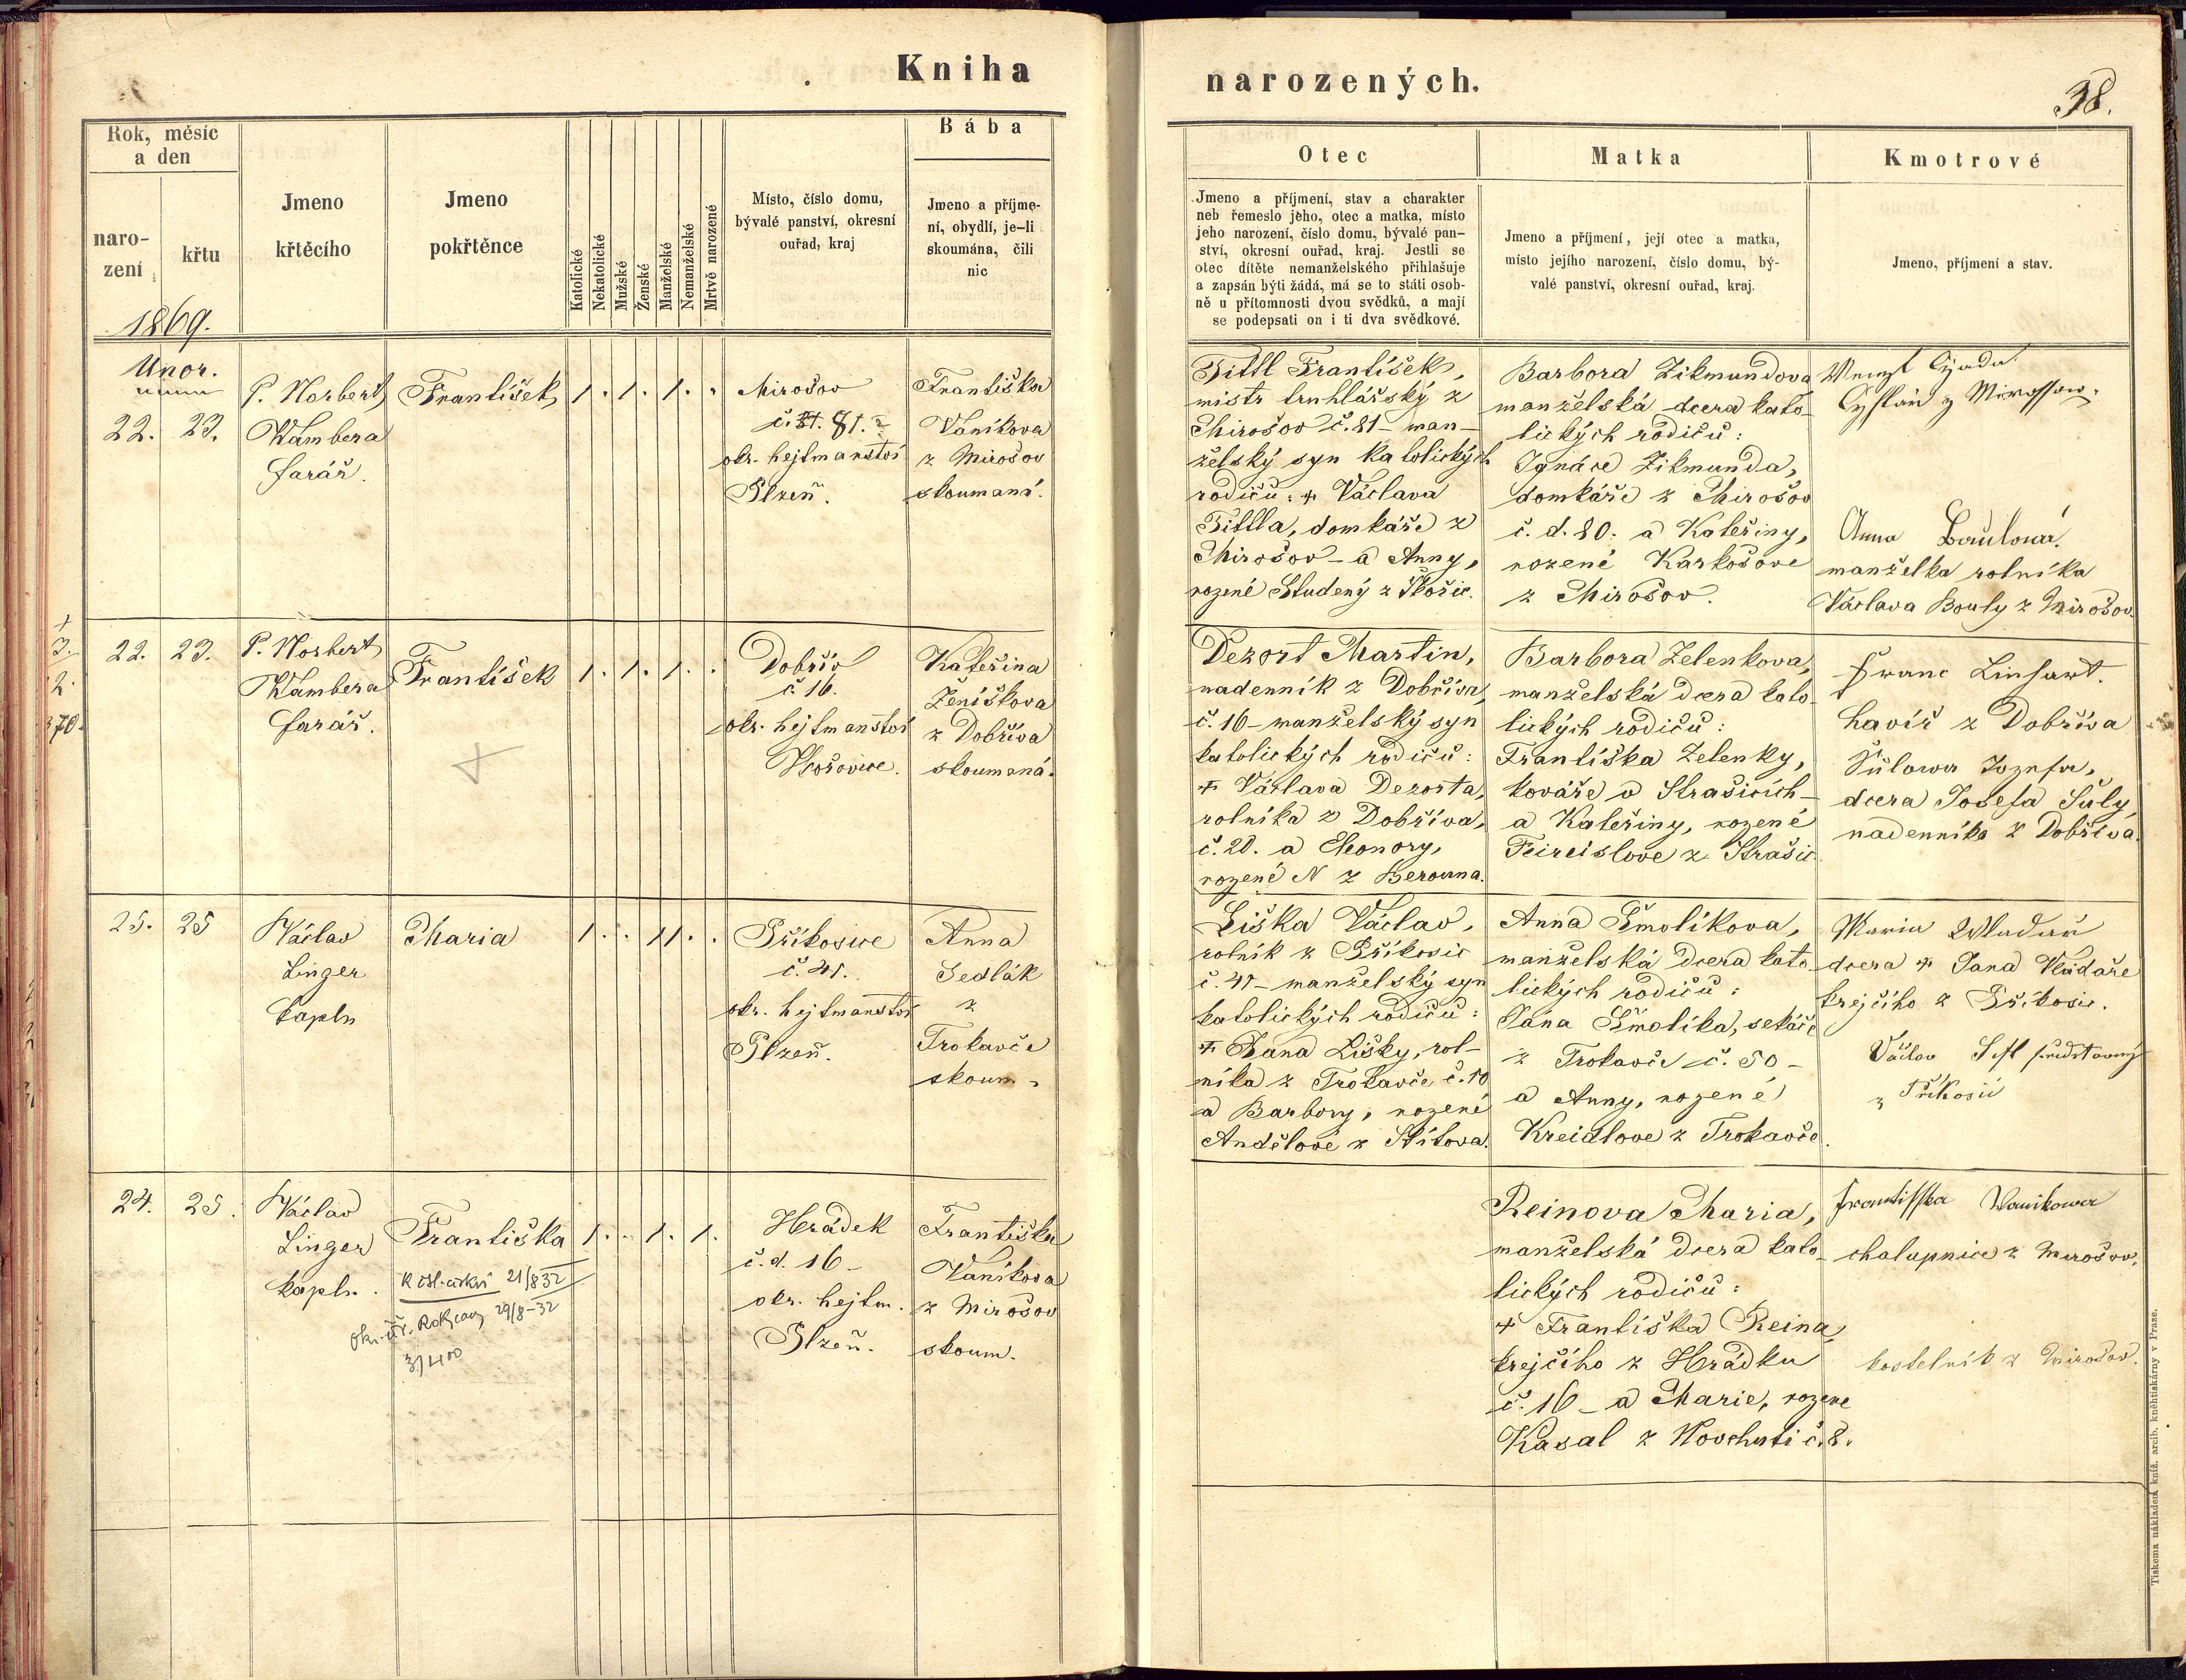 Kniha
narozených.
38.
Rok, měsíc
a den
naro-
zení
křtu
1869.
Jmeno
křtěcího
Jmeno
pokřtěnce
Katolické
Nekatolické
Mužské
Ženské
Manželské
Nemanželské
Mrtvě narozené
Místo, číslo domu,
bývalé panství, okresní
ouřad, kraj
Bába
Jmeno a příjme-
ní, obydlí, je-li
skoumána, čili
nic
Otec
Jmeno a příjmení, stav a charakter
neb řemeslo jeho, otec a matka, místo
jeho narození, číslo domu, bývalé pan-
ství, okresní ouřad, kraj. Jestli se
otec dítěte nemanželského přihlašuje
a zapsán býti žádá, má se to státi osob-
ně u přítomnosti dvou svědků, a mají
se podepsati on i ti dva svědkové.
Matka
Jmeno a příjmení, její otec a matka,
místo jejího narození, číslo domu, bý-
valé panství, okresní ouřad, kraj.
Kmotrové
Jmeno, příjmení a stav.
Unor.
22. 23.
P. Norbert
Wambera
farář.
František
1. 1. 1.
Mirošov
č. 81.
okr. hejtmanstvi
Plzeň.
Františka
Vaníkova
z Mirošov
skoumaná.
Tittl František,
mistr truhlářský z
Mirošov č. 81 – man-
želský syn katolických
rodičů: + Václava
Tittla, domkáře z
Mirošov – a Anny,
rozené Studený z Skořic.
Barbora Zikmundova
manželská dcera kato-
lických rodičů:
Ignáce Zikmunda,
domkáře z Mirošov
č. d. 80. a Kateřiny,
rozené Karkošove
z Mirošov.
Anna Boulová.
manželka rolníka
Václava Bouly z Mirošov.
+
3.
2.
870.
22. 23.
P. Norbert
Wambera
farář.
František
1. 1. 1.
Dobřív
č. 16.
okr. hejtmanstvi
Hořovice.
Kateřina
Ženíškova
z Dobříva
skoumaná.
Dezort Martin,
nadenník z Dobříva,
č. 16 – manželský syn
katolických rodičů:
+ Václava Dezorta,
rolníka z Dobříva,
č. 20. a Eleonory,
rozené N z Berouna.
Barbora Zelenkova,
manželská dcera kato-
lických rodičů:
Františka Zelenky,
kováře v Strašicích –
a Kateřiny, rozené
Feireislove z Strašic.
Franc Linhart.
havíř z Dobříva
Šůlowa Jozefa,
dcera Josefa Šůly,
nadenníka z Dobříva.
25. 25
Václav
Linger
kapln
Maria
1. 1 1.
Příkosice
č. 41.
okr. hejtmanstvi
Plzeň.
Anna
Sedlák
z
Trokavče
skoum.
Liška Václav,
rolník z Příkosic
č. 41 – manželský syn
katolických rodičů:
+ Jana Lišky, rol-
níka z Trokavče č. 10
a Barbory, rozené
Andělové z Štítova.
Anna Šmolíkova,
manželská dcera kato-
lických rodičů:
Jana Šmolíka, sekáče
z Trokavče č. 50 –
a Anny, rozené
Kreidlove z Trokavče.
Maria Wladař
dcera + Jana Vladaře
krejčího z Příkosic.
Václav
z Příkosic
24. 25.
Václav
Linger
kapln.
Františka
21/8 32
Okr. úř. Rokycany 29/8–32
1. 1. 1.
Hrádek
č. d. 16 –
okr. hejtm.
Plzeň.
Františka
Vaníkova
z Mirošov
skoum.
Reinova Maria,
manželská dcera kato-
lických rodičů:
+ Františka Reina,
krejčího z Hrádku
č. 16 – a Marie, rozene
Kasal z Novehuti č. 8.
Frantisska Wanikowa
chalupnice z Mirošov.
kostelník z Mirošov.
Tiskema nákladem kníž. arcib. kněhtiskárny v Praze.